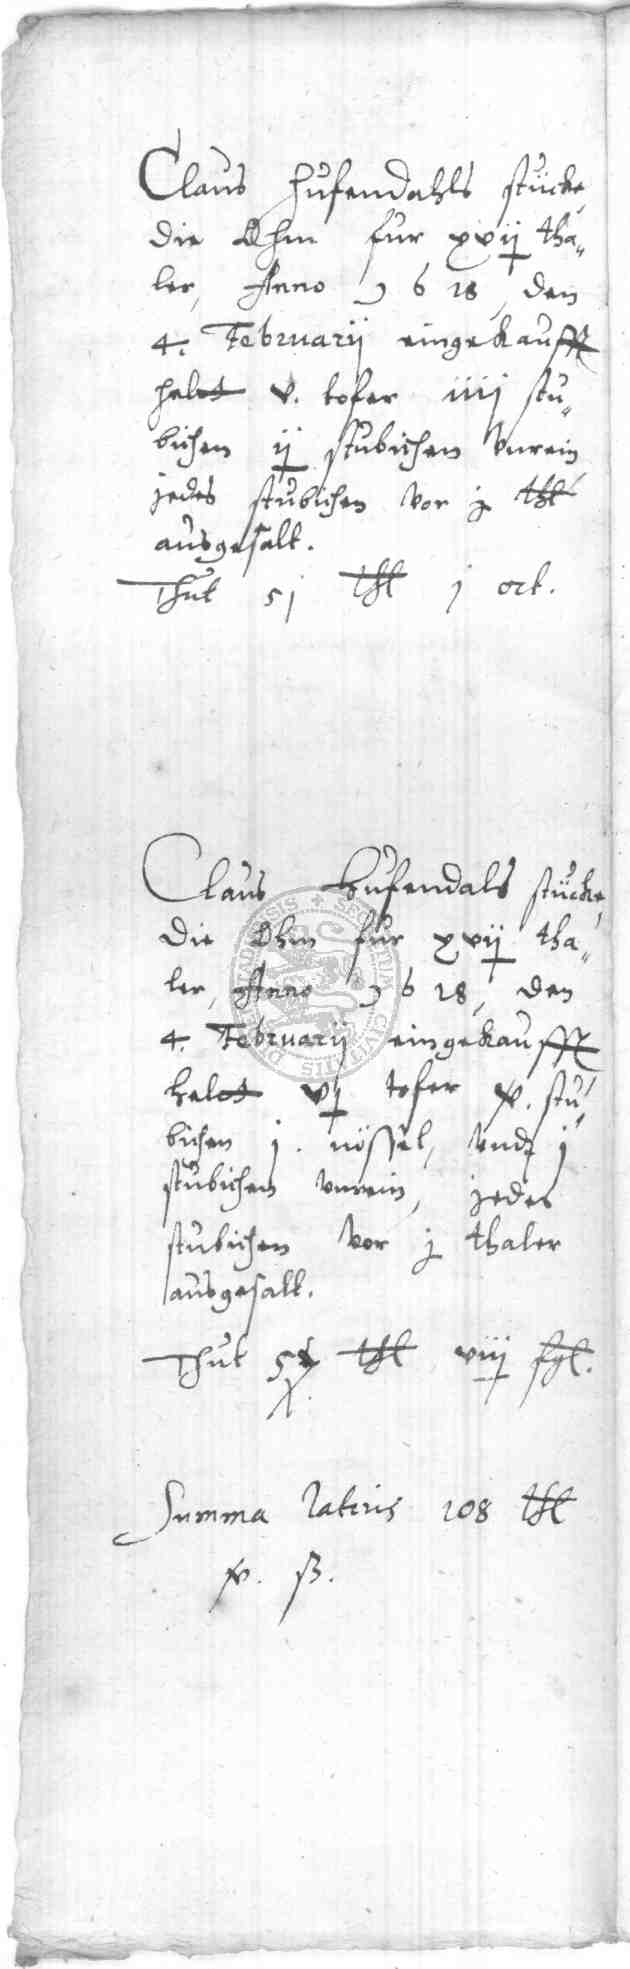 Claus Hufendahls stücke,
die Ohm fur xvij tha„
ler, Anno 1618, den
4. Februarij eingekaufft
helt v. tofer iiij stu„
bichen ij stubichen vnrein
jedes stubichen vor j thl
ausgesalt.
Thut 51 thl j ort.
Claus Hufendals stücke,
die Ohm fur xvij tha„
ler, Anno 1618, den
4. Februarij eingekaufft
helt vj tofer x. stu„
bichen j. nössel, vnd j
stubichen vnrein, jedes
stubichen vor j thaler
ausgesalt.
Thut thl viij ßgl.
Summa lateris 108 thl
x. ß.
SECUNDA CIVITATIS